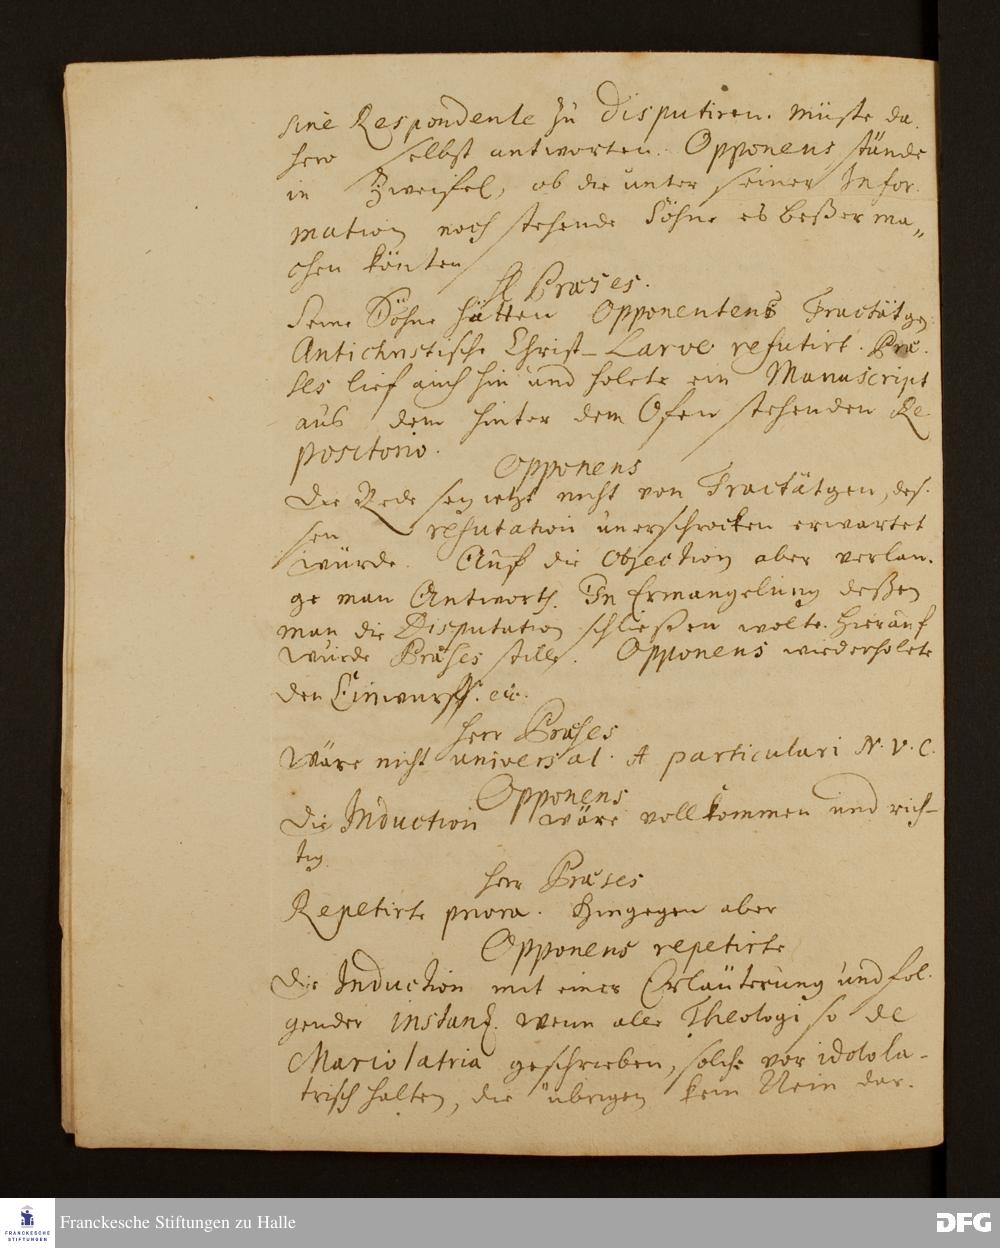 sine Respondente zu disputiren. Müste da.
hero selbst antworten. Opponens stünde
in Zweifel, ob die unter seiner Infor.
mation noch stehende Söhne es beßer ma„
chen könten
H Præses.
Seine Söhne hätten Opponentens Tractätgen
Antichristische Christ-Larve refutirt. Præ.
ses lief auch hin und holete ein Manuscript
aus dem hinter dem Ofen stehenden Re
positorio.
Opponens
Die Rede sey jetzt nicht von Tractätgen, des.
sen refutation unerschrocken erwartet
würde. Auf die Objection aber verlan.
ge man Antworth. In Ermangelung deßen
man die Disputation schließen wolte. Hierauf
wurde Præses stille. Opponens wiederholete
den Einwurff. etc.
Herr Præses
Wäre nicht universal. A particulari N. V. C.
Opponens
Die Induction wäre vollkommen und rich-
tig.
Herr Præses
Repetirte priora. Hingegen aber
Opponens repetirte
Die Induction mit einer Erläuterung und fol.
gender instanz. Wenn alle Theologi so de
Mariolatria geschrieben, solche vor idolola-
trisch halten, die übrigen kein Nein dar.
FRANCKESCHE STIFTUNGEN
Franckesche Stiftungen zu Halle
DFG